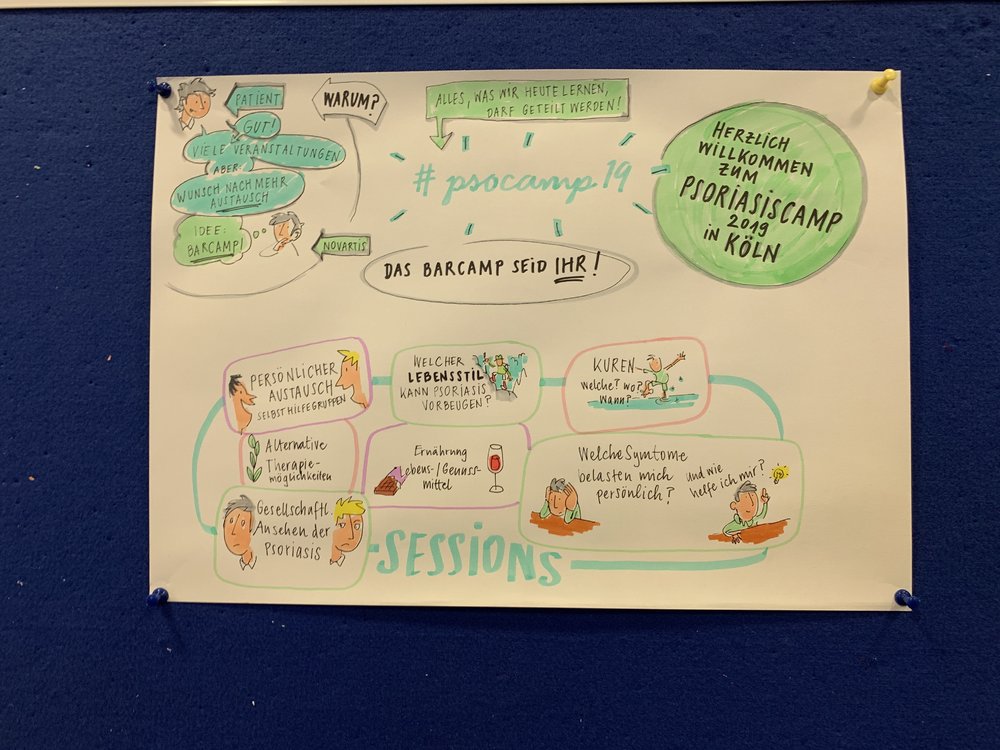 PATIENT
WARUM?
GUT!
VIELE VERANSTALTUNGEN
ABER:
WUNSCH NACH MEHR
AUSTAUSCH
IDEE:
BARCAMP!
NOVARTIS
ALLES, WAS WIR HEUTE LERNEN,
DARF GETEILT WERDEN!
#psocamp19
DAS BARCAMP SEID IHR!
HERZLICH
WILLKOMMEN
ZUM
PSORIASISCAMP
2019
in KÖLN
PERSÖNLICHER
AUSTAUSCH
SELBSTHILFEGRUPPEN
WELCHER
LEBENSSTIL
KANN PSORIASIS
VORBEUGEN?
KUREN
welche? wo?
Wann?
Alternative
Therapie-
möglichkeiten
Ernährung
Lebens-/Genuss-
mittel
Welche Symtome
belasten mich
persönlich?
und wie
helfe ich mir?
Gesellschaftl.
Ansehen der
Psoriasis
SESSIONS